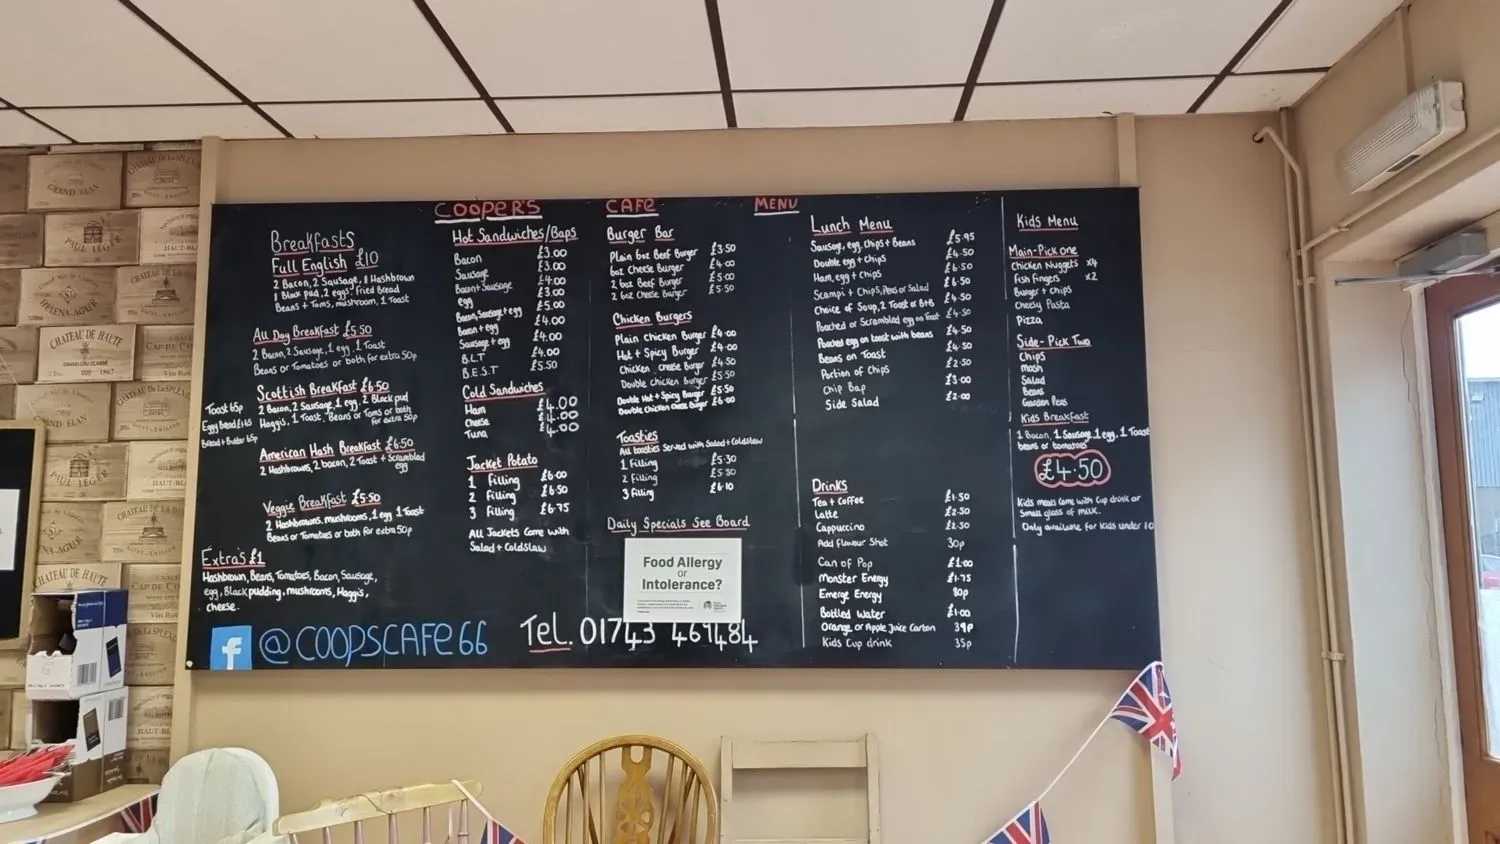 COOPER'S CAFE MENU
Breakfasts
Full English £10
2 Bacon, 2 Sausage, 1 Hashbrown
1 Black pud, 2 eggs, Fried Bread
Beans + Toms, mushroom, 1 Toast
All Day Breakfast £5.50
2 Bacon, 2 Sausage, 1 egg, 1 Toast
Beans or Tomatoes or both for extra 50p
Scottish Breakfast £6.50
2 Bacon, 2 Sausage, 1 egg, 2 Black pud
Haggis, 1 Toast, Beans or Toms or both
for extra 50p
Toast 65p
Eggy Bread £1.45
Bread + Butter 65p
American Hash Breakfast £6.50
2 Hashbrowns, 2 bacon, 2 Toast + Scrambled
egg
Veggie Breakfast £5.50
2 Hashbrowns, mushrooms, 1 egg 1 Toast
Beans or Tomatoes or both for extra 50p
Extra's £1
Hashbrown, Beans, Tomatoes, Bacon, Sausage,
egg, Black pudding, mushrooms, Haggis,
cheese.
Hot Sandwiches/Baps
Bacon £3.00
Sausage £3.00
Bacon + Sausage £4.00
egg £3.00
Bacon, Sausage + egg £5.00
Bacon + egg £4.00
Sausage + egg £4.00
B.L.T £4.00
B.E.S.T £5.50
Cold Sandwiches
Ham £4.00
Cheese £4.00
Tuna £4.00
Jacket Potato
1 Filling £6.00
2 Filling £6.50
3 Filling £6.75
All Jackets Come with
Salad + Coldslaw
Burger Bar
Plain 6oz Beef Burger £3.50
6oz Cheese Burger £4.00
2 6oz Beef Burger £5.00
2 6oz Cheese Burger £5.50
Chicken Burgers
Plain chicken Burger £4.00
Hot + Spicy Burger £4.00
Chicken cheese Burger £4.50
Double chicken Burger £5.50
Double Hot + Spicy Burger £5.50
Double Chicken Cheese Burger £6.00
Toasties
All toasties Served with Salad + Coldslaw
1 Filling £5.30
2 Filling £5.30
3 Filling £6.10
Daily Specials See Board
Food Allergy
or
Intolerance?
Lunch Menu
Sausage, egg, chips + Beans £5.95
Double egg + Chips £4.50
Ham, egg + Chips £6.50
Scampi + Chips, Peas or Salad £6.50
Choice of Soup, 2 Toast or B+B £4.50
Poached or Scrambled egg on Toast £4.50
Poached egg on toast with beans £4.50
Beans on Toast £4.50
Portion of Chips £2.50
Chip Bap £3.00
Side Salad £2.00
Drinks
Tea + Coffee £1.50
Latte £2.50
Cappuccino £2.50
Add flavour Shot 30p
Can of Pop £1.00
Monster Energy £1.75
Emerge Energy 80p
Bottled Water £1.00
Orange or Apple Juice Carton 39p
Kids Cup drink 35p
Kids Menu
Main-Pick one
Chicken Nuggets x4
Fish Fingers x2
Burger + Chips
Cheesy Pasta
Pizza
Side- Pick Two
Chips
Mash
Salad
Beans
Garden Peas
Kids Breakfast
1 Bacon, 1 Sausage, 1 egg, 1 Toast
beans or tomatoes
£4.50
Kids meals come with Cup drink or
Small glass of milk.
Only available for Kids under 10
f @COOPSCAFE66
Tel. 01743 469484
CHATEAU DE LA SPLEN
GRAND ELAN
PAUL LEGER
HAUT-BL
HELENA-AGUR
CHATEAU DE HAUTE
GRAND CRU CLASSÉ
1867
PAUL LEGER
CHATEAU DE HAUTE
CAP DE C
HAUT-BL